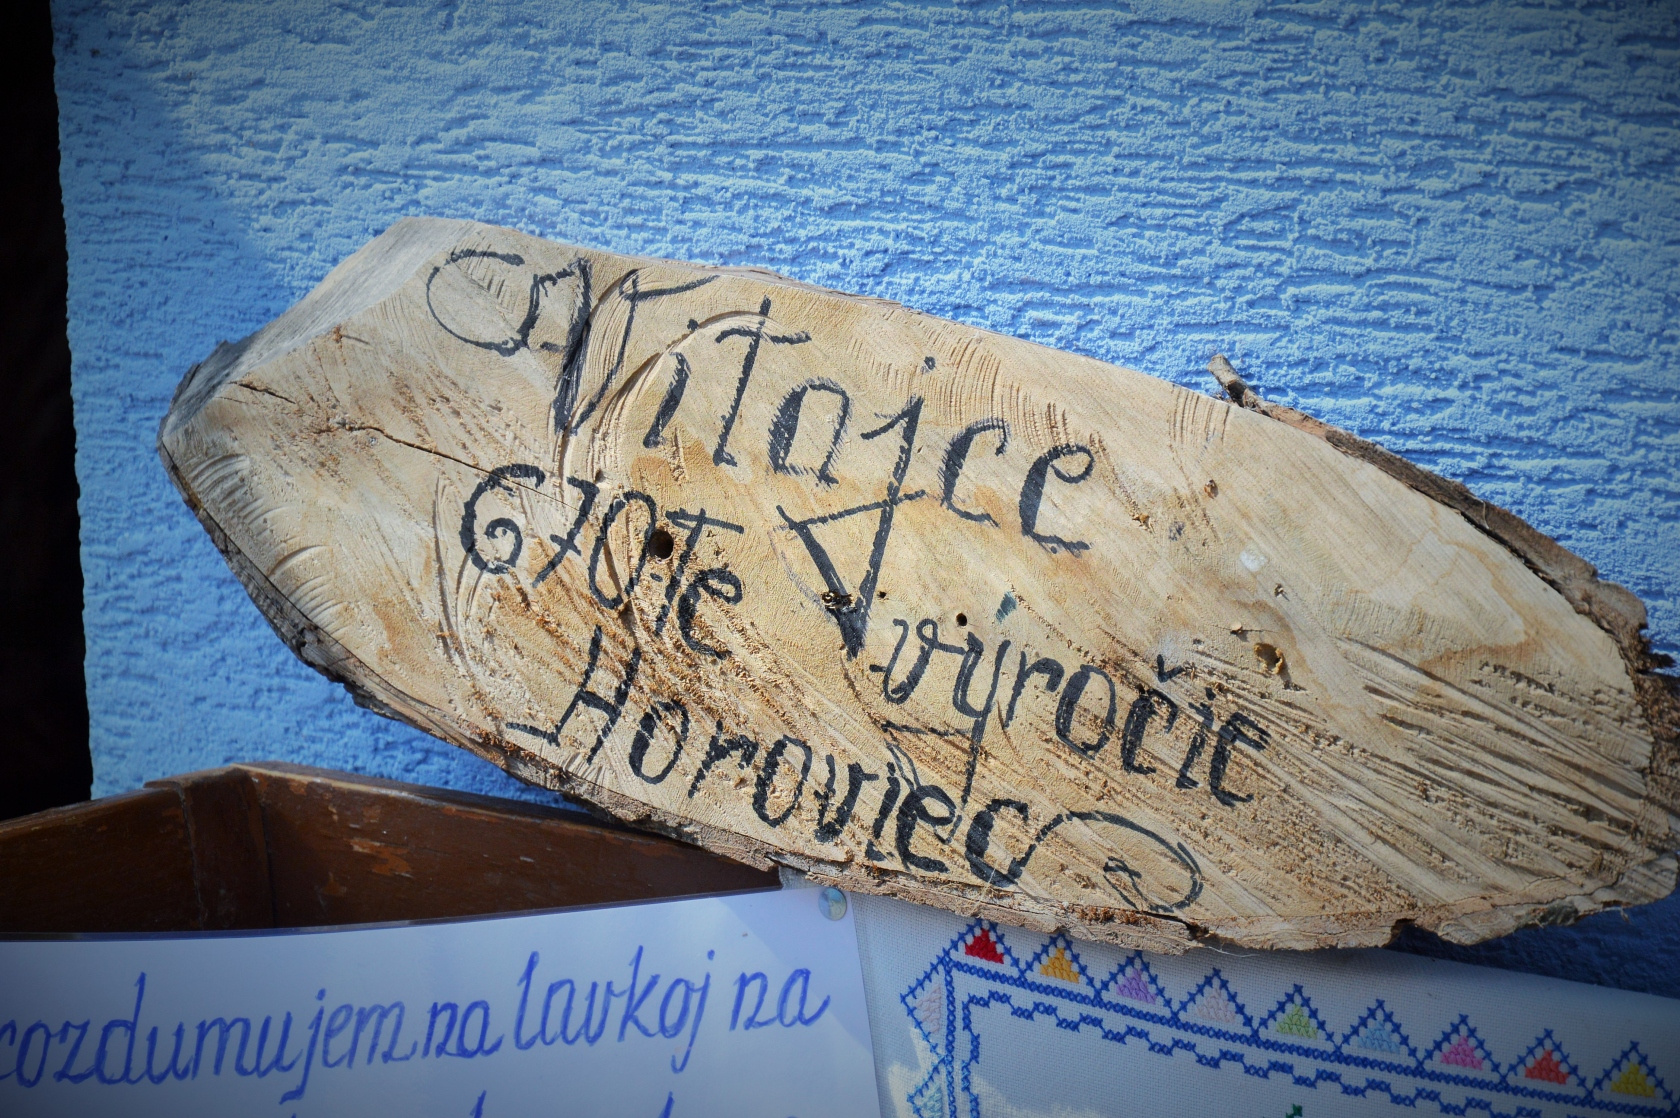 Vitajce
670-te výročie
Horoviec
rozdumujem na lavkoj na